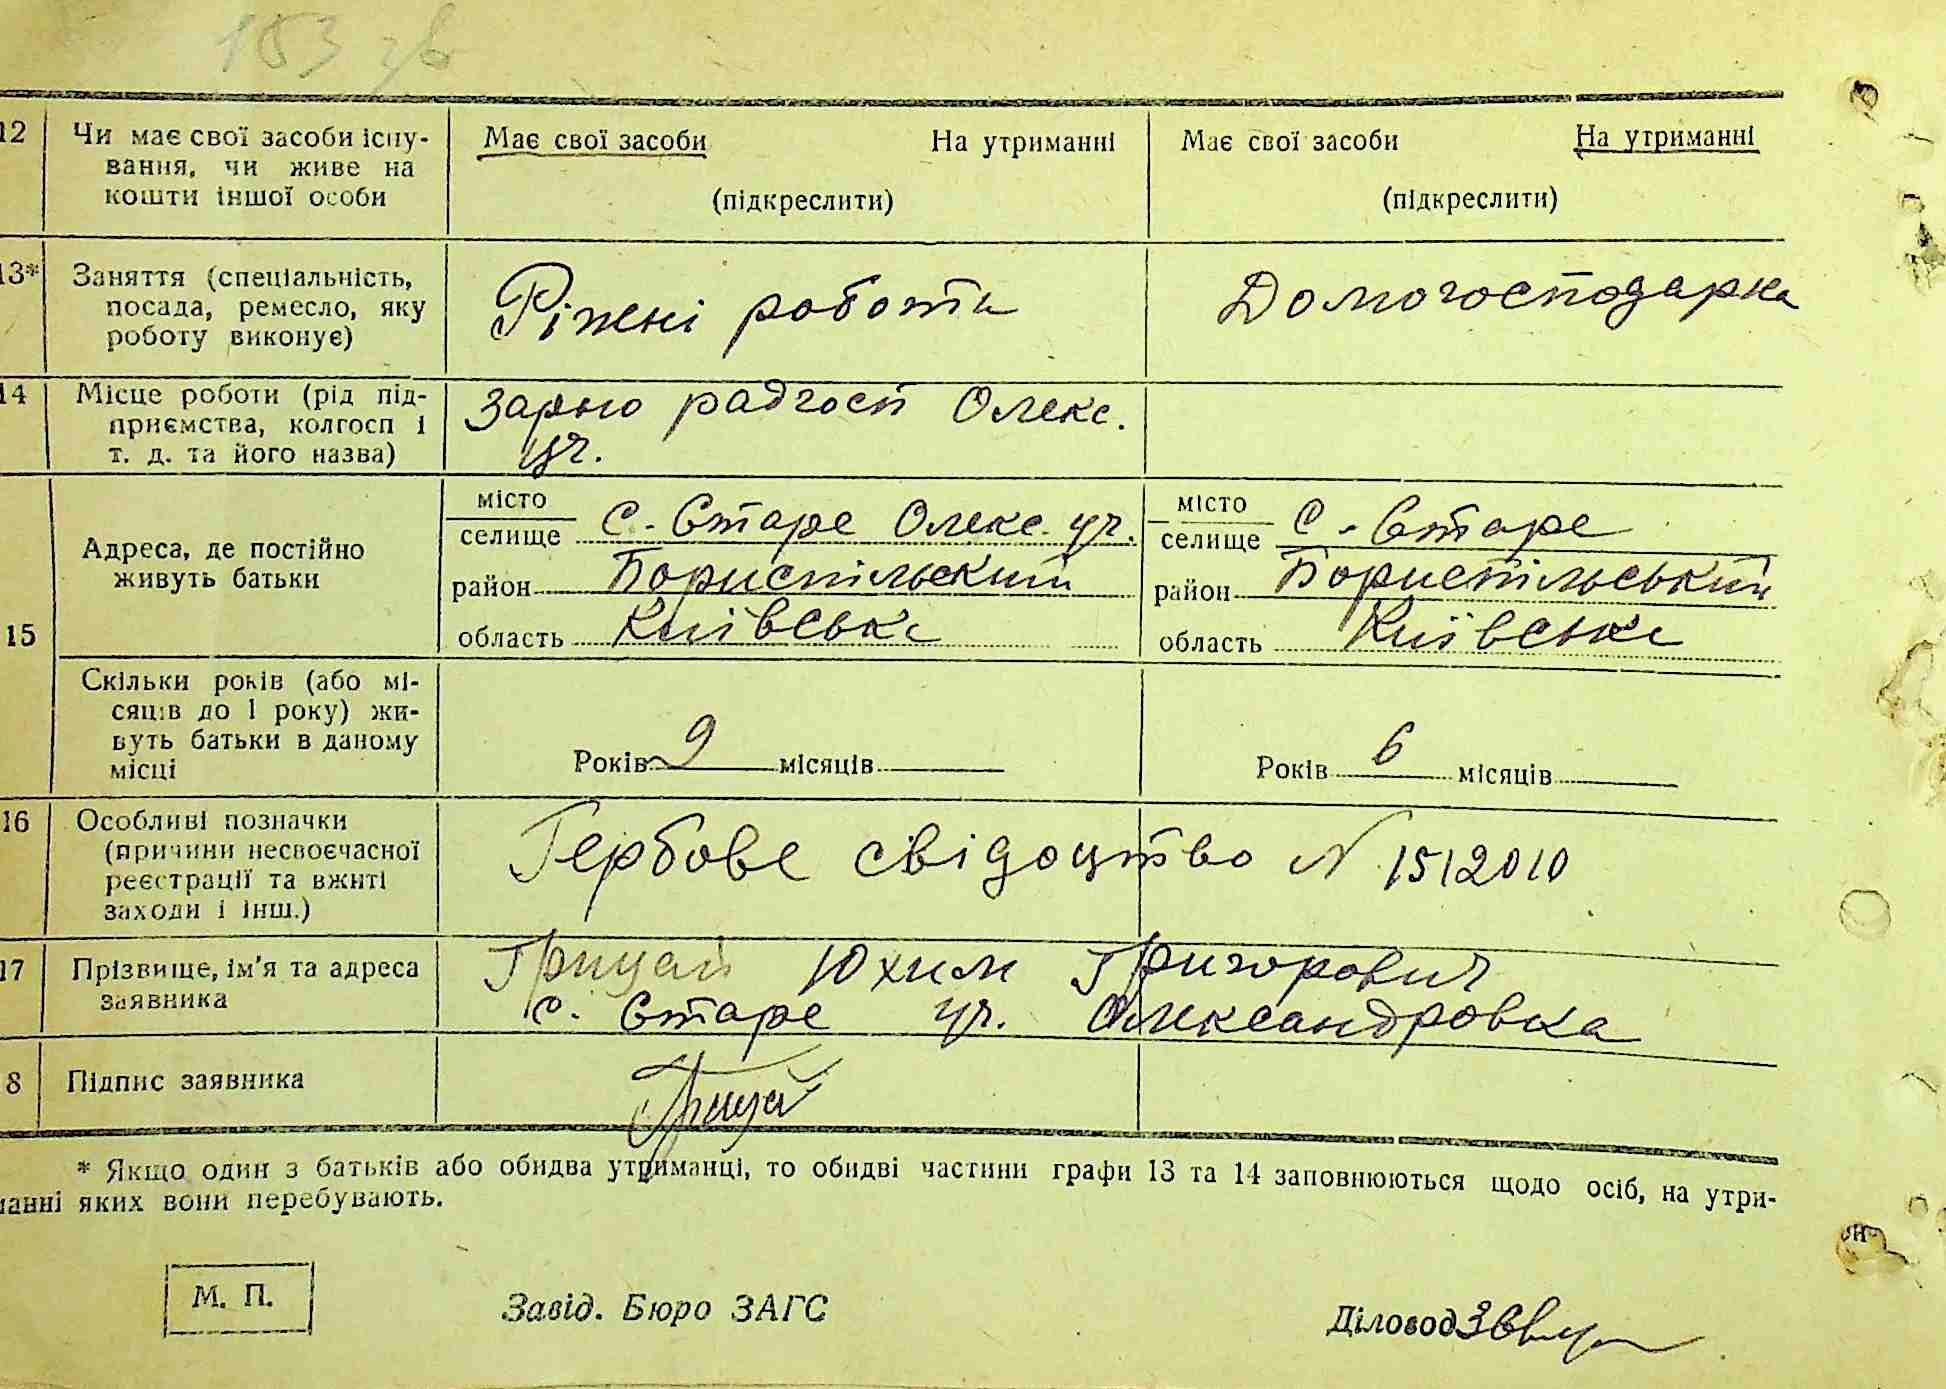 153 зв
12 Чи має свої засоби існу- Має свої засоби На утриманні Має свої засоби На утриманні
вання, чи живе на
кошти іншої особи (підкреслити) (підкреслити)
13* Заняття (спеціальність, Ріжні роботи Домогосподарка
посада, ремесло, яку
роботу виконує)
14 Місце роботи (рід під- радгосп Олекс.
приємства, колгосп і уч.
т. д. та його назва)
15 Адреса, де постійно живуть батьки
місто
селище с. Старе Олекс. уч.
район Бориспільский
область Київська
місто
селище с. Старе
район Бориспільський
область Київська
Скільки років (або мі-
сяців до 1 року) жи-
вуть батьки в даному
місці
Років 9 місяців Років 6 місяців
16 Особливі позначки
(причини несвоєчасної Гербове свідоцтво N 1512010
реєстрації та вжиті
заходи і інш.)
17 Прізвище, ім'я та адреса Грицай Юхим Григорович
заявника с. Старе уч. Олександровка
8 Підпис заявника Грицай
* Якщо один з батьків або обидва утриманці, то обидві частини графи 13 та 14 заповнюються щодо осіб, на утри-
манні яких вони перебувають.
М. П. Завід. Бюро ЗАГС Діловод